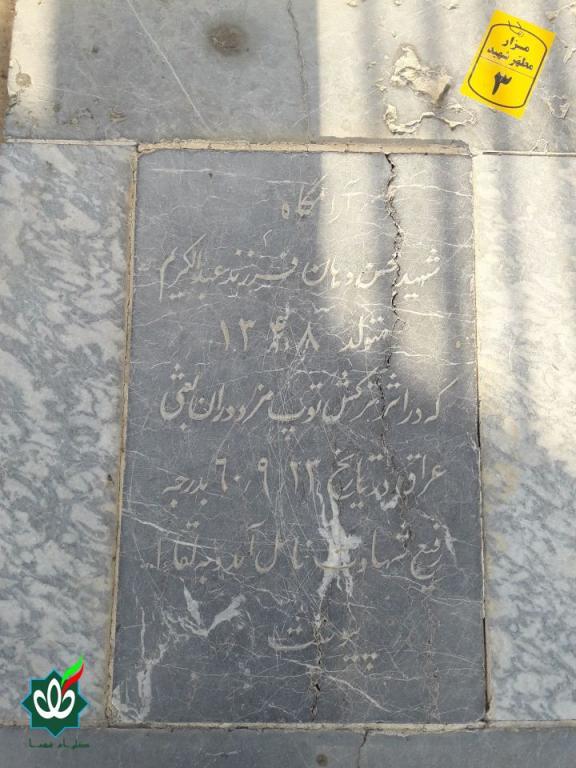 مزار
مطهر شهید
۳
آرامگاه
شهید حسن دهان فرزند عبدالکریم
متولد ۱۳۴۸
که در اثر ترکش توپ مزدوران بعثی
عراق در تاریخ ۶۰.۹.۱۳ بدرجه
رفیع شهادت نائل آمد و به لقاء
پیوست